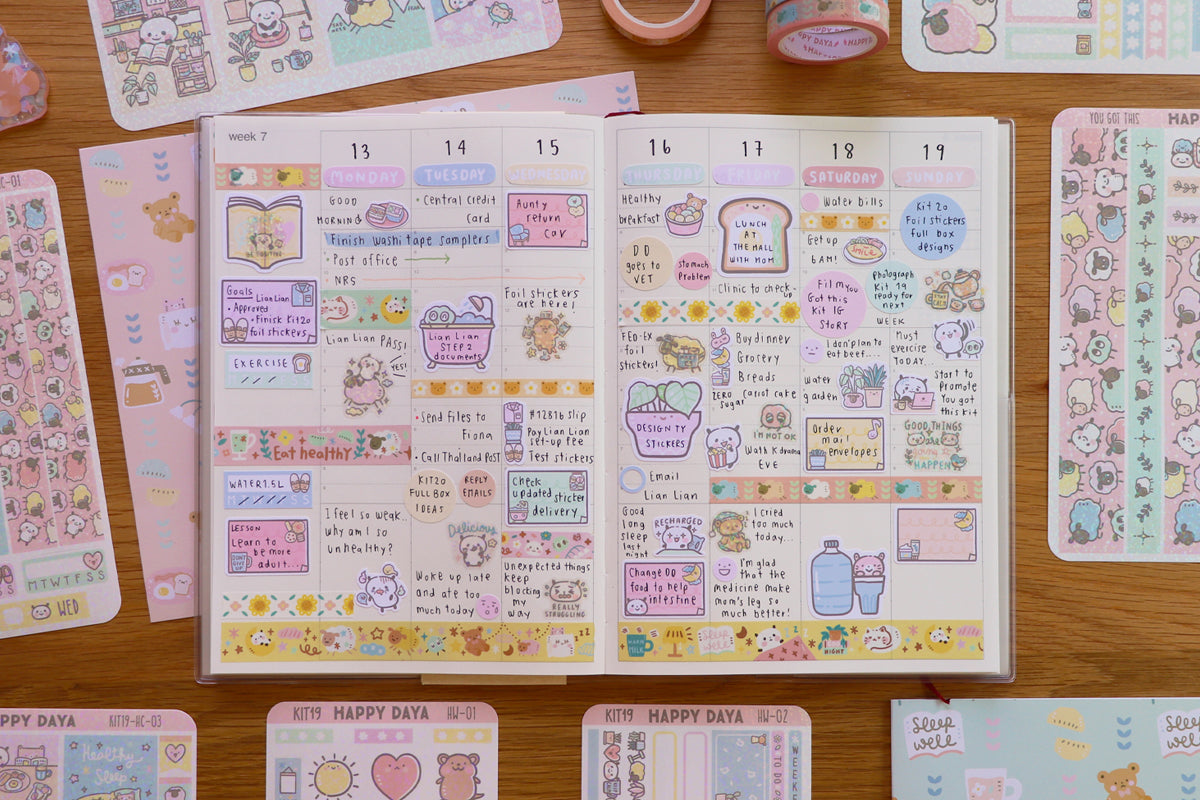 week 7
13
MONDAY
GOOD
MORNING
Finish washi tape samplers
Post office
NRS
Lian Lian PASS!
YES!
I feel so weak..
why am I so
unhealthy?
BE POSITIVE
Goals
Lian Lian
• Approved
• Finish Kit20
foil stickers
EXERCISE
Eat healthy
WATER 1.5L
LESSON
Learn to
be more
adult...
DON'T
GIVE UP
14
TUESDAY
• Central Credit
Card
Lian Lian
STEP 2
documents
• Send Files to
Fiona
• Call Thailand Post
KIT20
FULL BOX
IDEAS
REPLY
EMAILS
Delicious
Woke up late
and ate too
much today
15
WEDNESDAY
Aunty
return
car
Foil stickers
are here!
Pay Lian Lian
set-up fee
Test stickers
Check
updated sticker
delivery
Unexpected things
keep
blocking
my
way
REALLY
STRUGGLING
16
THURSDAY
Healthy
breakfast
DD
goes to
VET
stomach
Problem
FED-EX
foil
stickers!
DESIGN TY
STICKERS
Email
Lian Lian
Good
long
sleep
last
night
RECHARGED
Change DD
food to help
intestine
WARM
MILK
Sleep
well
17
FRIDAY
LUNCH
AT
THE MALL
WITH MOM
Clinic to check-up
Buy dinner
Grocery
Breads
ZERO
sugar
carrot cake
I'M NOT OK
Watch K drama
EVE
I cried
too much
today...
I'm glad
that the
medicine make
mom's leg so
much better!
18
SATURDAY
Water bills
Get up
6AM!
SMILE
Film You
Got this
Kit IG
STORY
Photograph
Kit 19
ready for
next
WEEK
I don't plan to
eat beef....
Water
garden
Order
mail
envelopes
NIGHT
19
SUNDAY
Kit 20
Foil stickers
full box
designs
STAY
CALM
Must
exercise
TODAY...
Start to
promote
You got
this kit
GOOD THINGS
are
going to
HAPPEN
YOU GOT THIS
HAPPY DAYA
MTWTFSS
WED
KIT19-HC-03
Healthy
Sleep
KIT19 HAPPY DAYA HW-01
KIT19 HAPPY DAYA HW-02
TO DO
Sleep
well